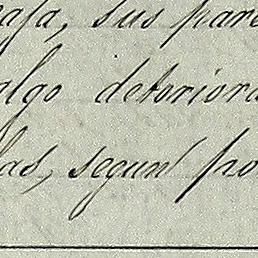 aja, sus pare
algo deteriora
las, segun pro